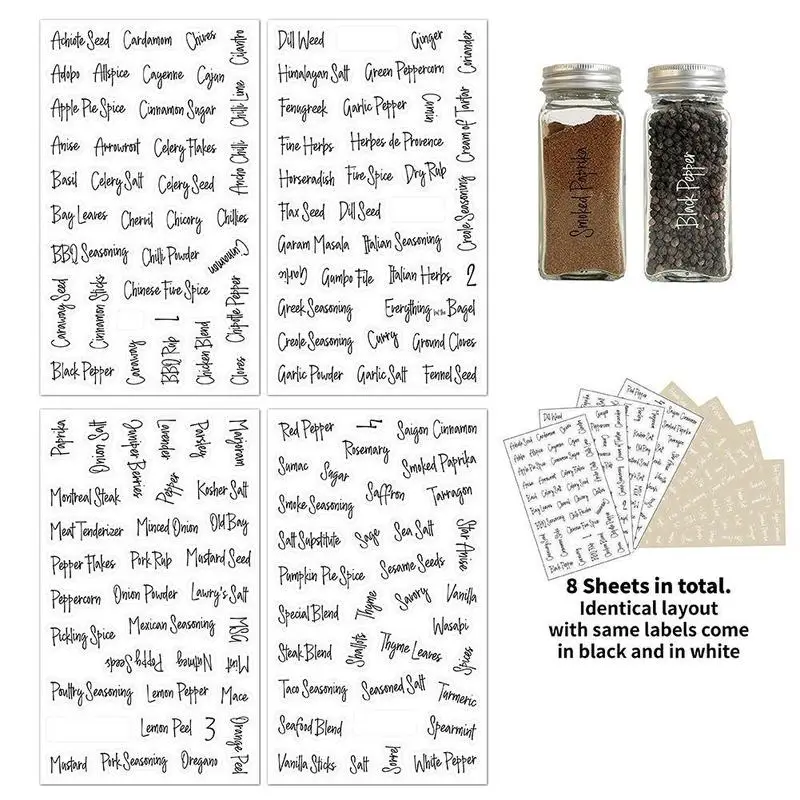 Achiote Seed Cardamom Chives Cilantro
Adobo Allspice Cayenne Cajun
Apple Pie Spice Cinnamon Sugar Chili Lime
Anise Arrowroot Celery Flakes Ancho Chilli
Basil Celery Salt Celery Seed
Bay Leaves Chervil Chicory Chillies
BBQ Seasoning Chilli Powder Cinnamon
Caraway Seed Cinnamon Sticks Chinese Five Spice Chipotle Pepper
Black Pepper Caraway BBQ Rub 1 Chicken Blend Cloves
Dill Weed Ginger Coriander
Himalayan Salt Green Peppercorn
Fenugreek Garlic Pepper Cumin Cream of Tartar
Fine Herbs Herbes de Provence
Horseradish Five Spice Dry Rub
Flax Seed Dill Seed Creole Seasoning
Garam Masala Italian Seasoning
Garlic Gumbo File Italian Herbs 2
Greek Seasoning Everything but the Bagel
Creole Seasoning Curry Ground Cloves
Garlic Powder Garlic Salt Fennel Seed
Paprika Onion Salt Juniper Berries Lavender Parsley Marjoram
Montreal Steak Pepper Kosher Salt
Meat Tenderizer Minced Onion Old Bay
Pepper Flakes Pork Rub Mustard Seed
Peppercorn Onion Powder Lawry's Salt
Pickling Spice Mexican Seasoning MSG
Poppy Seeds Nutmeg Mint
Poultry Seasoning Lemon Pepper Mace
Lemon Peel 3 Orange Peel
Mustard Pork Seasoning Oregano
Red Pepper 4 Saigon Cinnamon
Sumac Sugar Rosemary Smoked Paprika
Smoke Seasoning Saffron Tarragon
Salt Substitute Sage Sea Salt Star Anise
Pumpkin Pie Spice Sesame Seeds
Special Blend Thyme Savory Vanilla
Wasabi
Steak Blend Shallots Thyme Leaves Spices
Taco Seasoning Seasoned Salt Turmeric
Seafood Blend Spearmint
Vanilla Sticks Salt Sorrel White Pepper
Smoked Paprika
Black Pepper
8 Sheets in total.
Identical layout
with same labels come
in black and in white